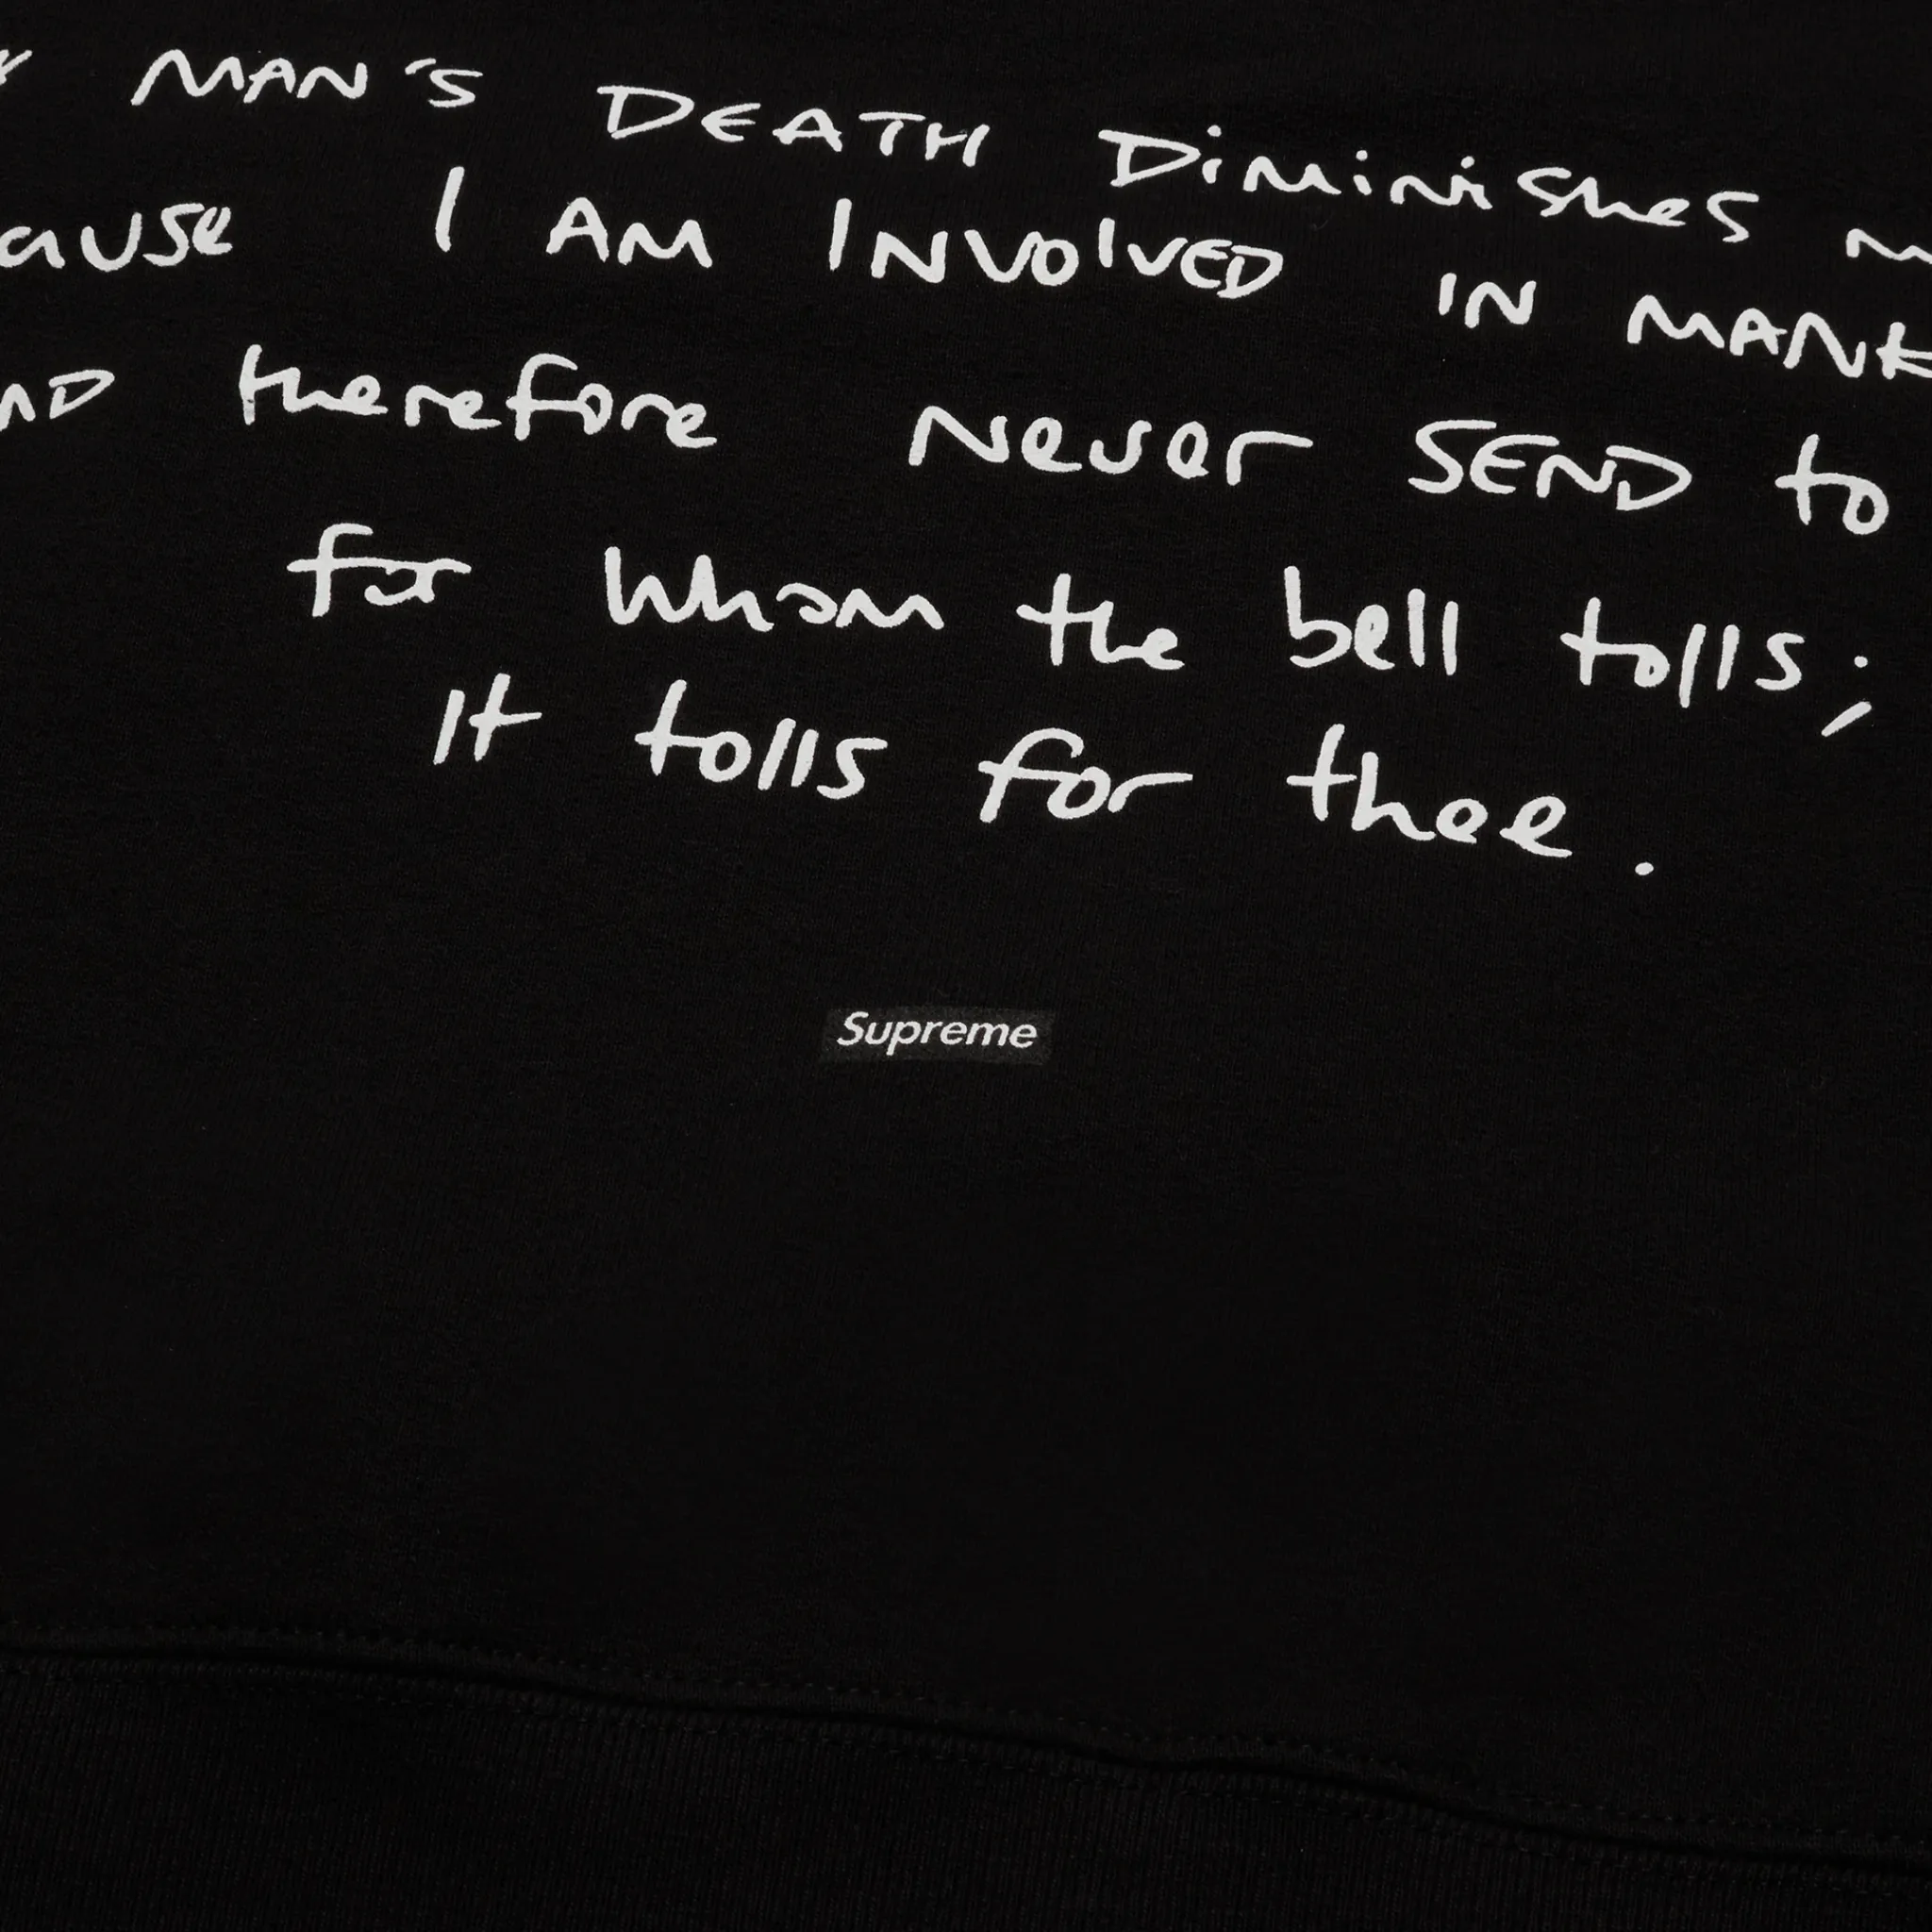 MAN'S DEATH DiMiNiSHeS
I AM INVOLVED IN
therefore Never SEND to
for Whom the bell tolls;
It tolls for thee.
Supreme